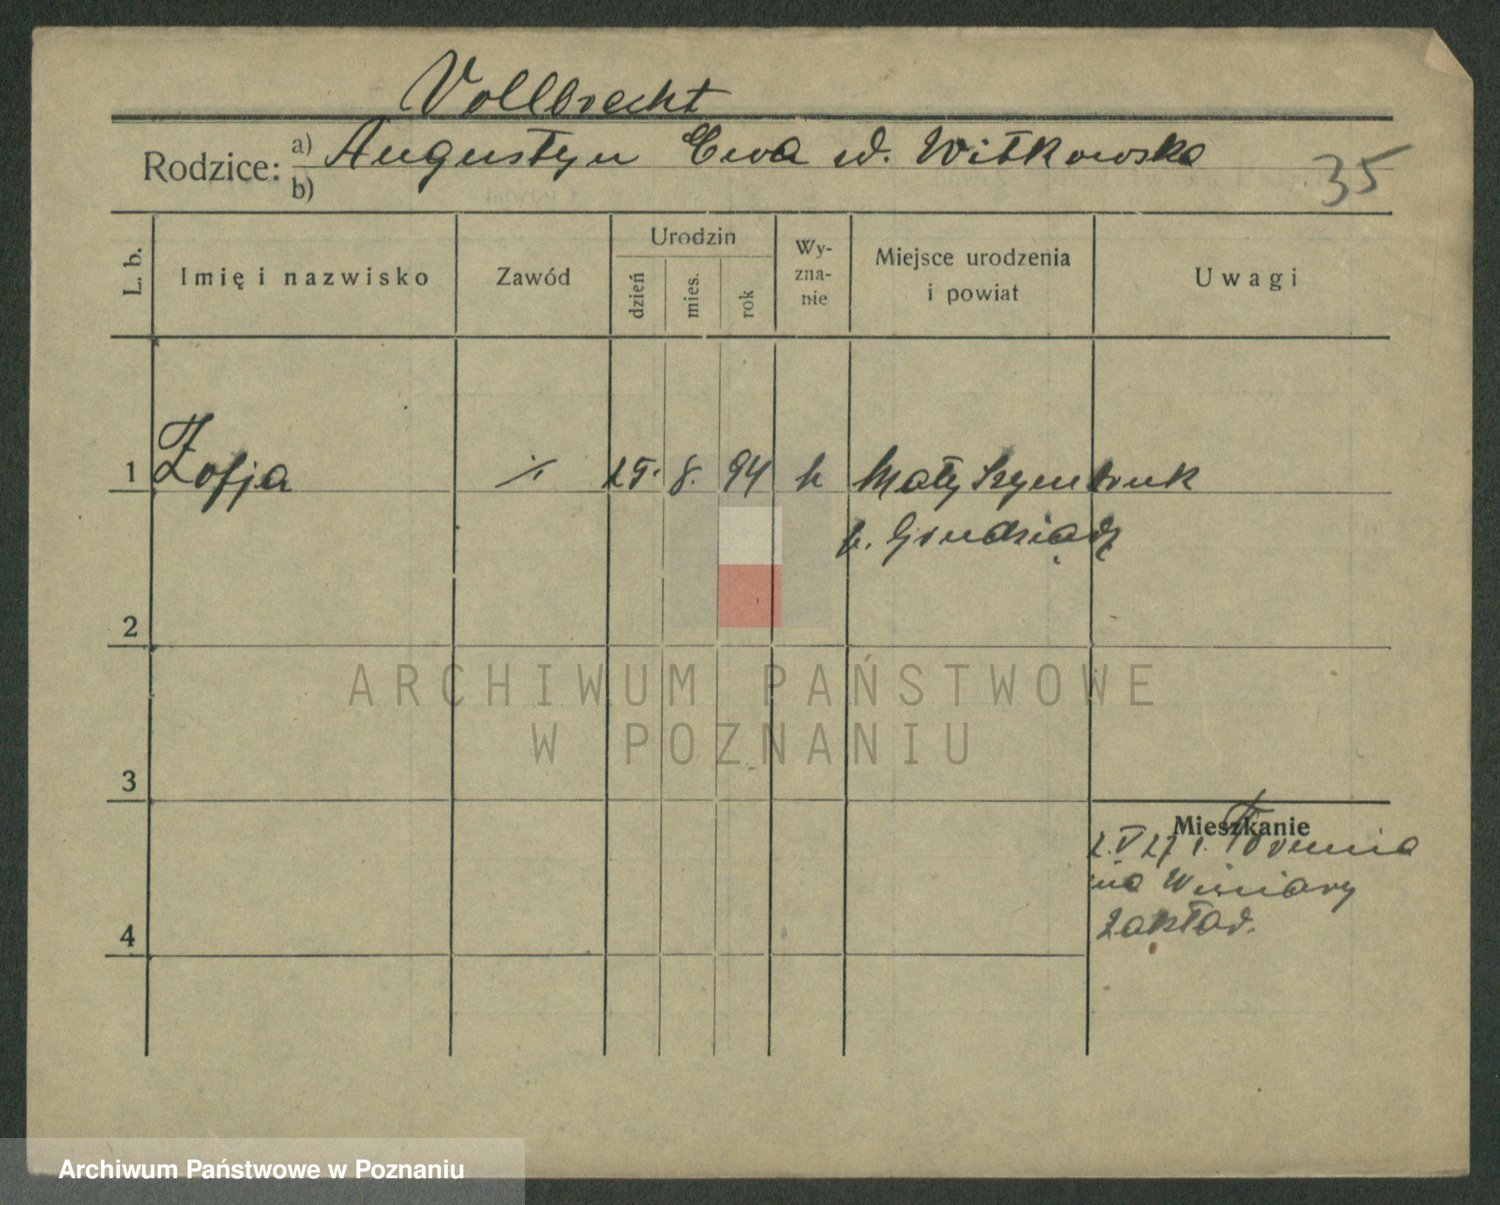 Vollbrecht
Rodzice: a) Augustyn Ewa d. Witkowska
b)
35
L. b. Imię i nazwisko Zawód Urodzin dzień mies. rok Wyznanie Miejsce urodzenia i powiat Uwagi
1 Zofja ./. 15. 8. 94 k Mały Szymbruk
p. Grudziądz
2
ARCHIWUM PAŃSTWOWE
W POZNANIU
3
Mieszkanie
2.V 27 z Torunia
na Winiary
zakład.
4
Archiwum Państwowe w Poznaniu